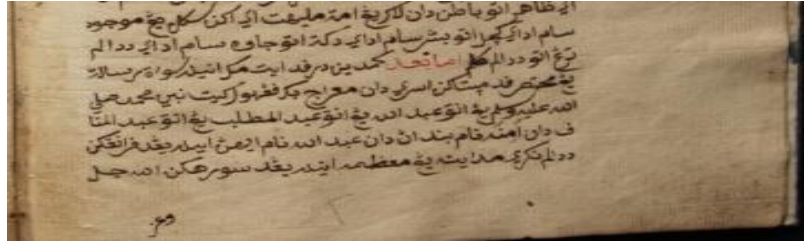 اي ظاهر اتو باطن دان لاݢي يڠ امة مليفت اي اكن سكل يڠ موجود
سام اداي كچل اتو بسر سام اداي دكة اتو جاوه سام اداي ددالم
ترڠ اتو ددالم كلم اما بعد كمدين در فد ايت مك انيله سوات رسالة
يڠ مختصر فد مپتاكن اسرى دان معراج فڠهولو كيت نبي محمد صلى
الله عليه وسلم يڠ انق عبد الله يڠ انق عبد المطلب يڠ انق عبد المنا
ف دان امنه نام بندان دان عبد الله نام ايهن ايله يڠد فرانقكن
ددالم نكري مدايتله يڠ معظمه ايله يڠد سورهكن الله جل
وعز